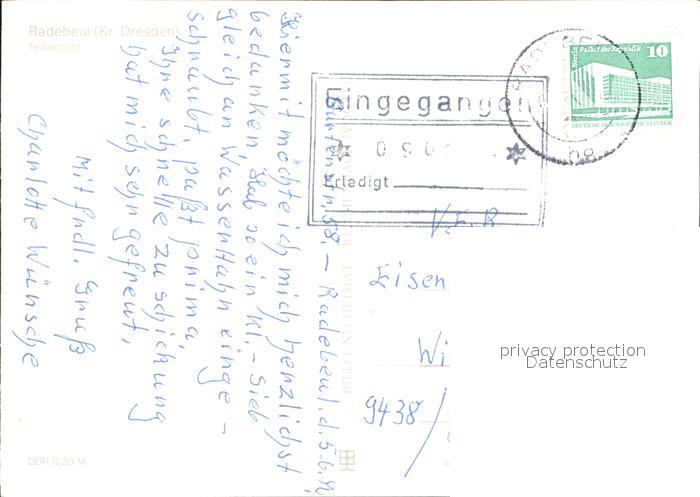 Radebeul (Kr. Dresden)
Teilansicht
Gartenstr. 58. – Radebeul, d. 5.6.
Hiermit möchte ich mich herzlichst
bedanken. Hab so ein kl. – Sieb
gleich an Wasserhahn einge –
schraubt, paßt prima.
Ihre schnelle Zuschickung
hat mich sehr gefreut,
Mit frdl. Gruß
Charlotte Wünsche
DDR 0,20 M
BILD UND HEIMAT
Eingegangen
Erledigt
Berlin, Palast der Republik
10
DEUTSCHE DEMOKRATISCHE REPUBLIK
V.E.B
Eisen
Wi
9438/
privacy protection
Datenschutz